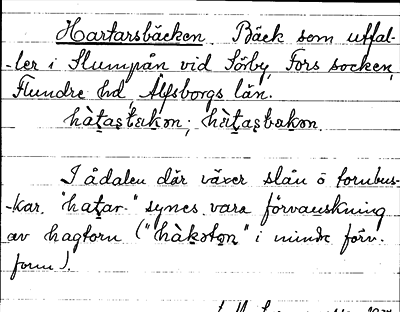 Hartarsbäcken Bäck som utfal-
-ler i Slumpån vid Sörby, Fors socken,
Flundre hd, Älfsborgs län.
hàt̠as̠t̠ɛk̠ən; hàt̠as̠bɛk̠ən.
I ådalen där växer slån o tornbus-
-kar. "hat̠ar" synes vara förvanskning
av hagtorn ("hàk̠ot̠n̠" i mindr förv.
form).